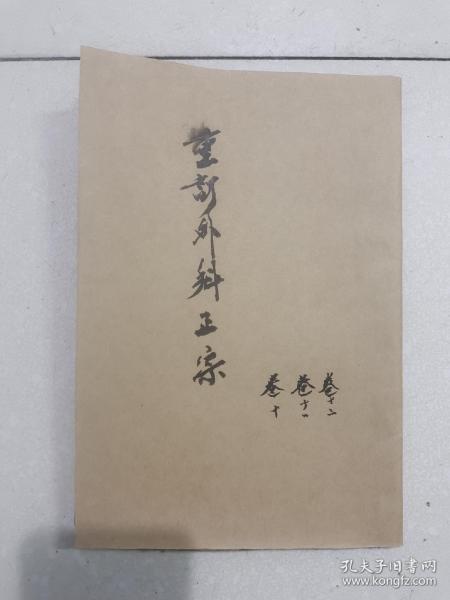 重訂外科正宗
卷十二
卷十一
卷十
孔夫子旧书网
www.kongfz.com